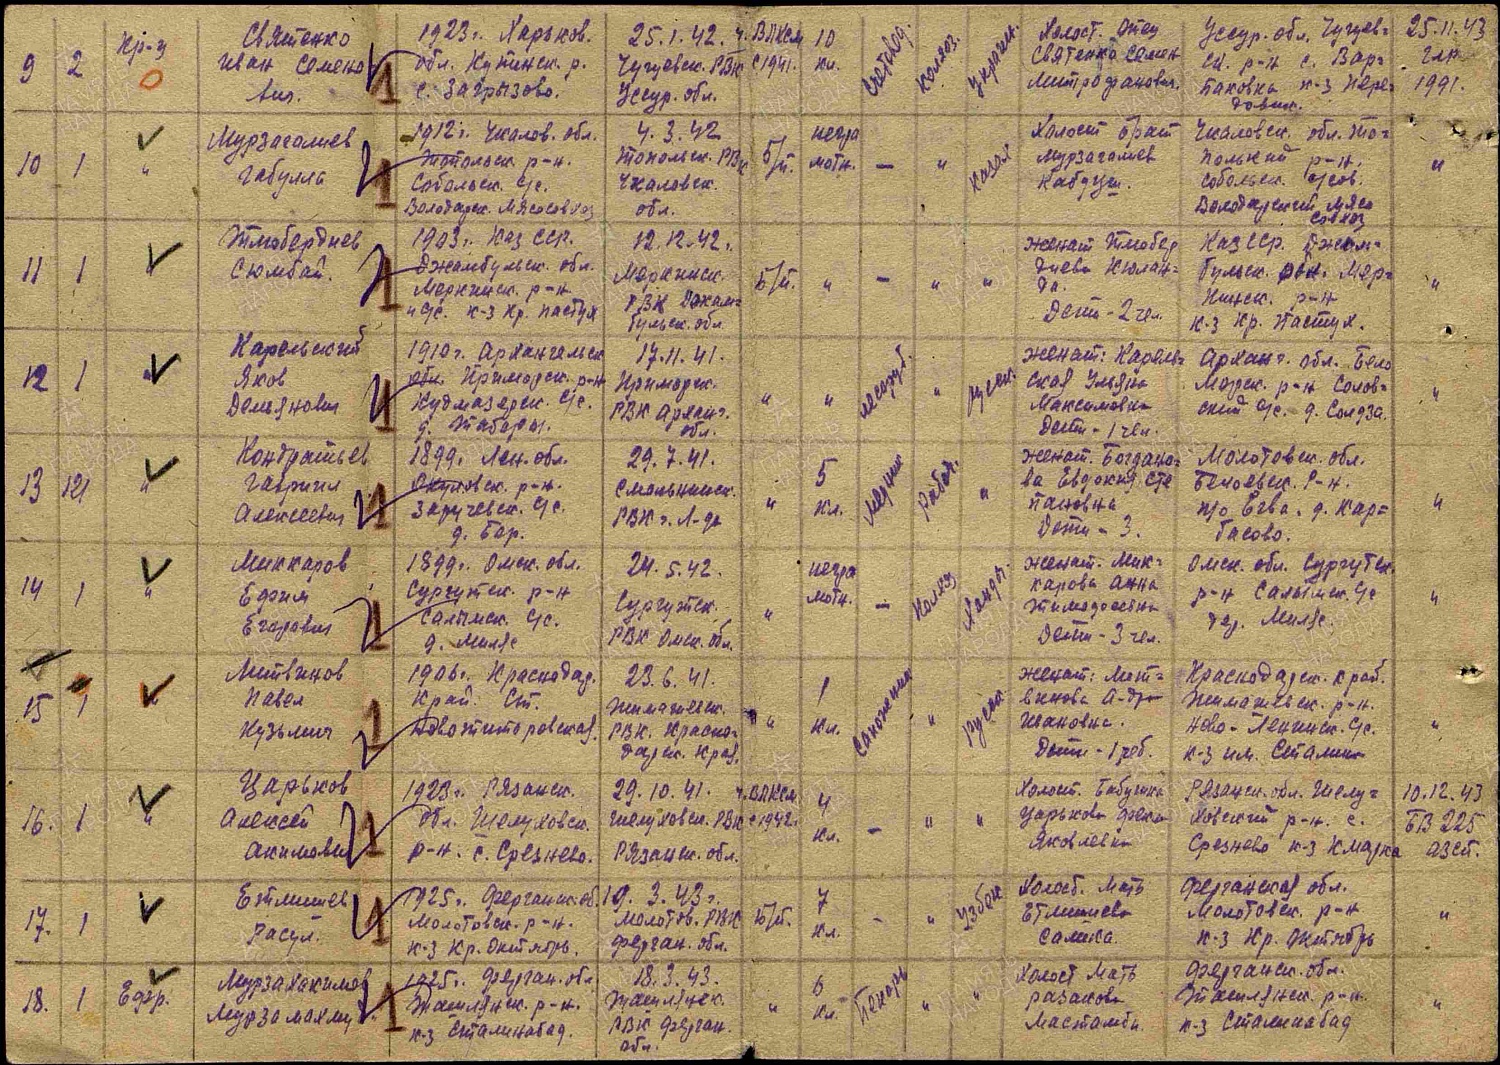 9 2 Кр-ц Святенко Иван Семенович 1923г. Харьков. обл. Купянск. р. с. Загрызово. 25.1.42. г. Чугуевск. РВК Уссур. обл. ВЛКСМ с 1941. 10 кл. Счетовод. колхоз. Украин. Холост. Отец Святенко Семен Митрофанович. Уссур. обл. Чугуев- ск. р-н с. Вар- паковка к-з Пере- довик. 25.11.43 глр 1991.
10 1 " Мурзагалиев Габулла 1912г. Чкалов. обл. Соболевск. с/с. Володарск. Мясосовхоз 4.3.42 РВК Чкаловск. обл. б/п. негра мотн. — " казах Холост брат Мурзагалиев Чкаловск. обл. р-н. Собольск. с/сов. Володарский Мясо совхоз "
11 1 " Тмобердиев Сюмбай. 1903г. Каз ССР. Джамбульск. обл. Меркинск. р-н с/с. к-з Кр. пастух 12.12.42г. Меркинск. РВК Джам- бульск. обл. б/п. " — " " женат Тмобер диева Дети - 2 чел. Каз ССР. Джам- бульск. обл. Мер- кинск. р-н к-з Кр. Пастух. "
12 1 " Карельский Яков Демьянович 1910г. Архангельск обл. Приморск. р-н Кудмазерск. с/с. д. Таборы. 17.11.41. Приморск. РВК Арханг. обл. " " лесоруб. " русск. женат: Карель- ская Ульяна Максимовна Дети - 1 чел. Арханг. обл. Бело морск. р-н Солов- ский с/с. д. Солдза. "
13 121 " Кондратьев Гавриил Алексеевич 1899г. Лен. обл. Окуловск. р-н. Заручевск. с/с. д. Бор. 29.7.41. Смольнинск. РВК г. Л-да " 5 кл. Медник рабоч. " женат. Богдано- ва Евдокия Сте пановна Дети - 3. Молотовск. обл. Белоевск. р-н. п/о Егва. д. Кар- басово. "
14 1 " Миккаров Ефим Егорович 1899г. Омск. обл. Сургутск. р-н Салымск. с/с. д. Миляс 24.5.42. Сургутск. РВК Омск. обл. " негра мотн. — Колхоз Ханты. женат. Мик- карова Анна Тимофеевна Дети - 3 чел. Омск. обл. Сургутск. р-н Салымск. с/с дер. Миляс. "
15 1 " Литвинов Павел Кузьмич 1906г. Краснодар. Край. Ст. Новотиторовская. 23.6.41. Тимашевск. РВК. Красно- дарск. Край. " 1 кл. Сапожник " русск. женат: Лит- винова А-др Ивановна. Дети - 1 реб. Краснодарск. край. Тимашевск. р-н. Ново-Ленинск. с/с. к-з им. Сталина "
16. 1 " Царьков Алексей Акимович 1923г. Рязанск. обл. Шелуховск. р-н. с. Срезнево. 29.10.41. г. Шелуховск. РВК Рязанск. обл. ВЛКСМ с 1942г. 4 кл. — " " Холост. Бабушка Царькова Фекла Яковлевна Рязанск. обл. Шелу- ховский р-н. с. Срезнево к-з К.Маркса 10.12.43 БВ 225 азсп.
17. 1 " Етмишев Расул. 1925г. Ферганск. об. Молотовск. р-н. к-з Кр. Октябрь. 19.3.43г. Молотов. РВК Ферган. обл. б/п. 7 кл. - " Узбек Холост. Мать Етмишева Самиха. Ферганская обл. Молотовск. р-н к-з Кр. Октябрь "
18. 1 Ефр. Мурзахакимов 1925г. Ферган. обл. Ташлакск. р-н. к-з Сталинабад. 18.3.43. Ташлакск. РВК Ферган. обл. " 6 кл. Пекарь " " Холост Мать Разакова Ферганск. обл. Ташлакск. р-н. к-з Сталинабад "